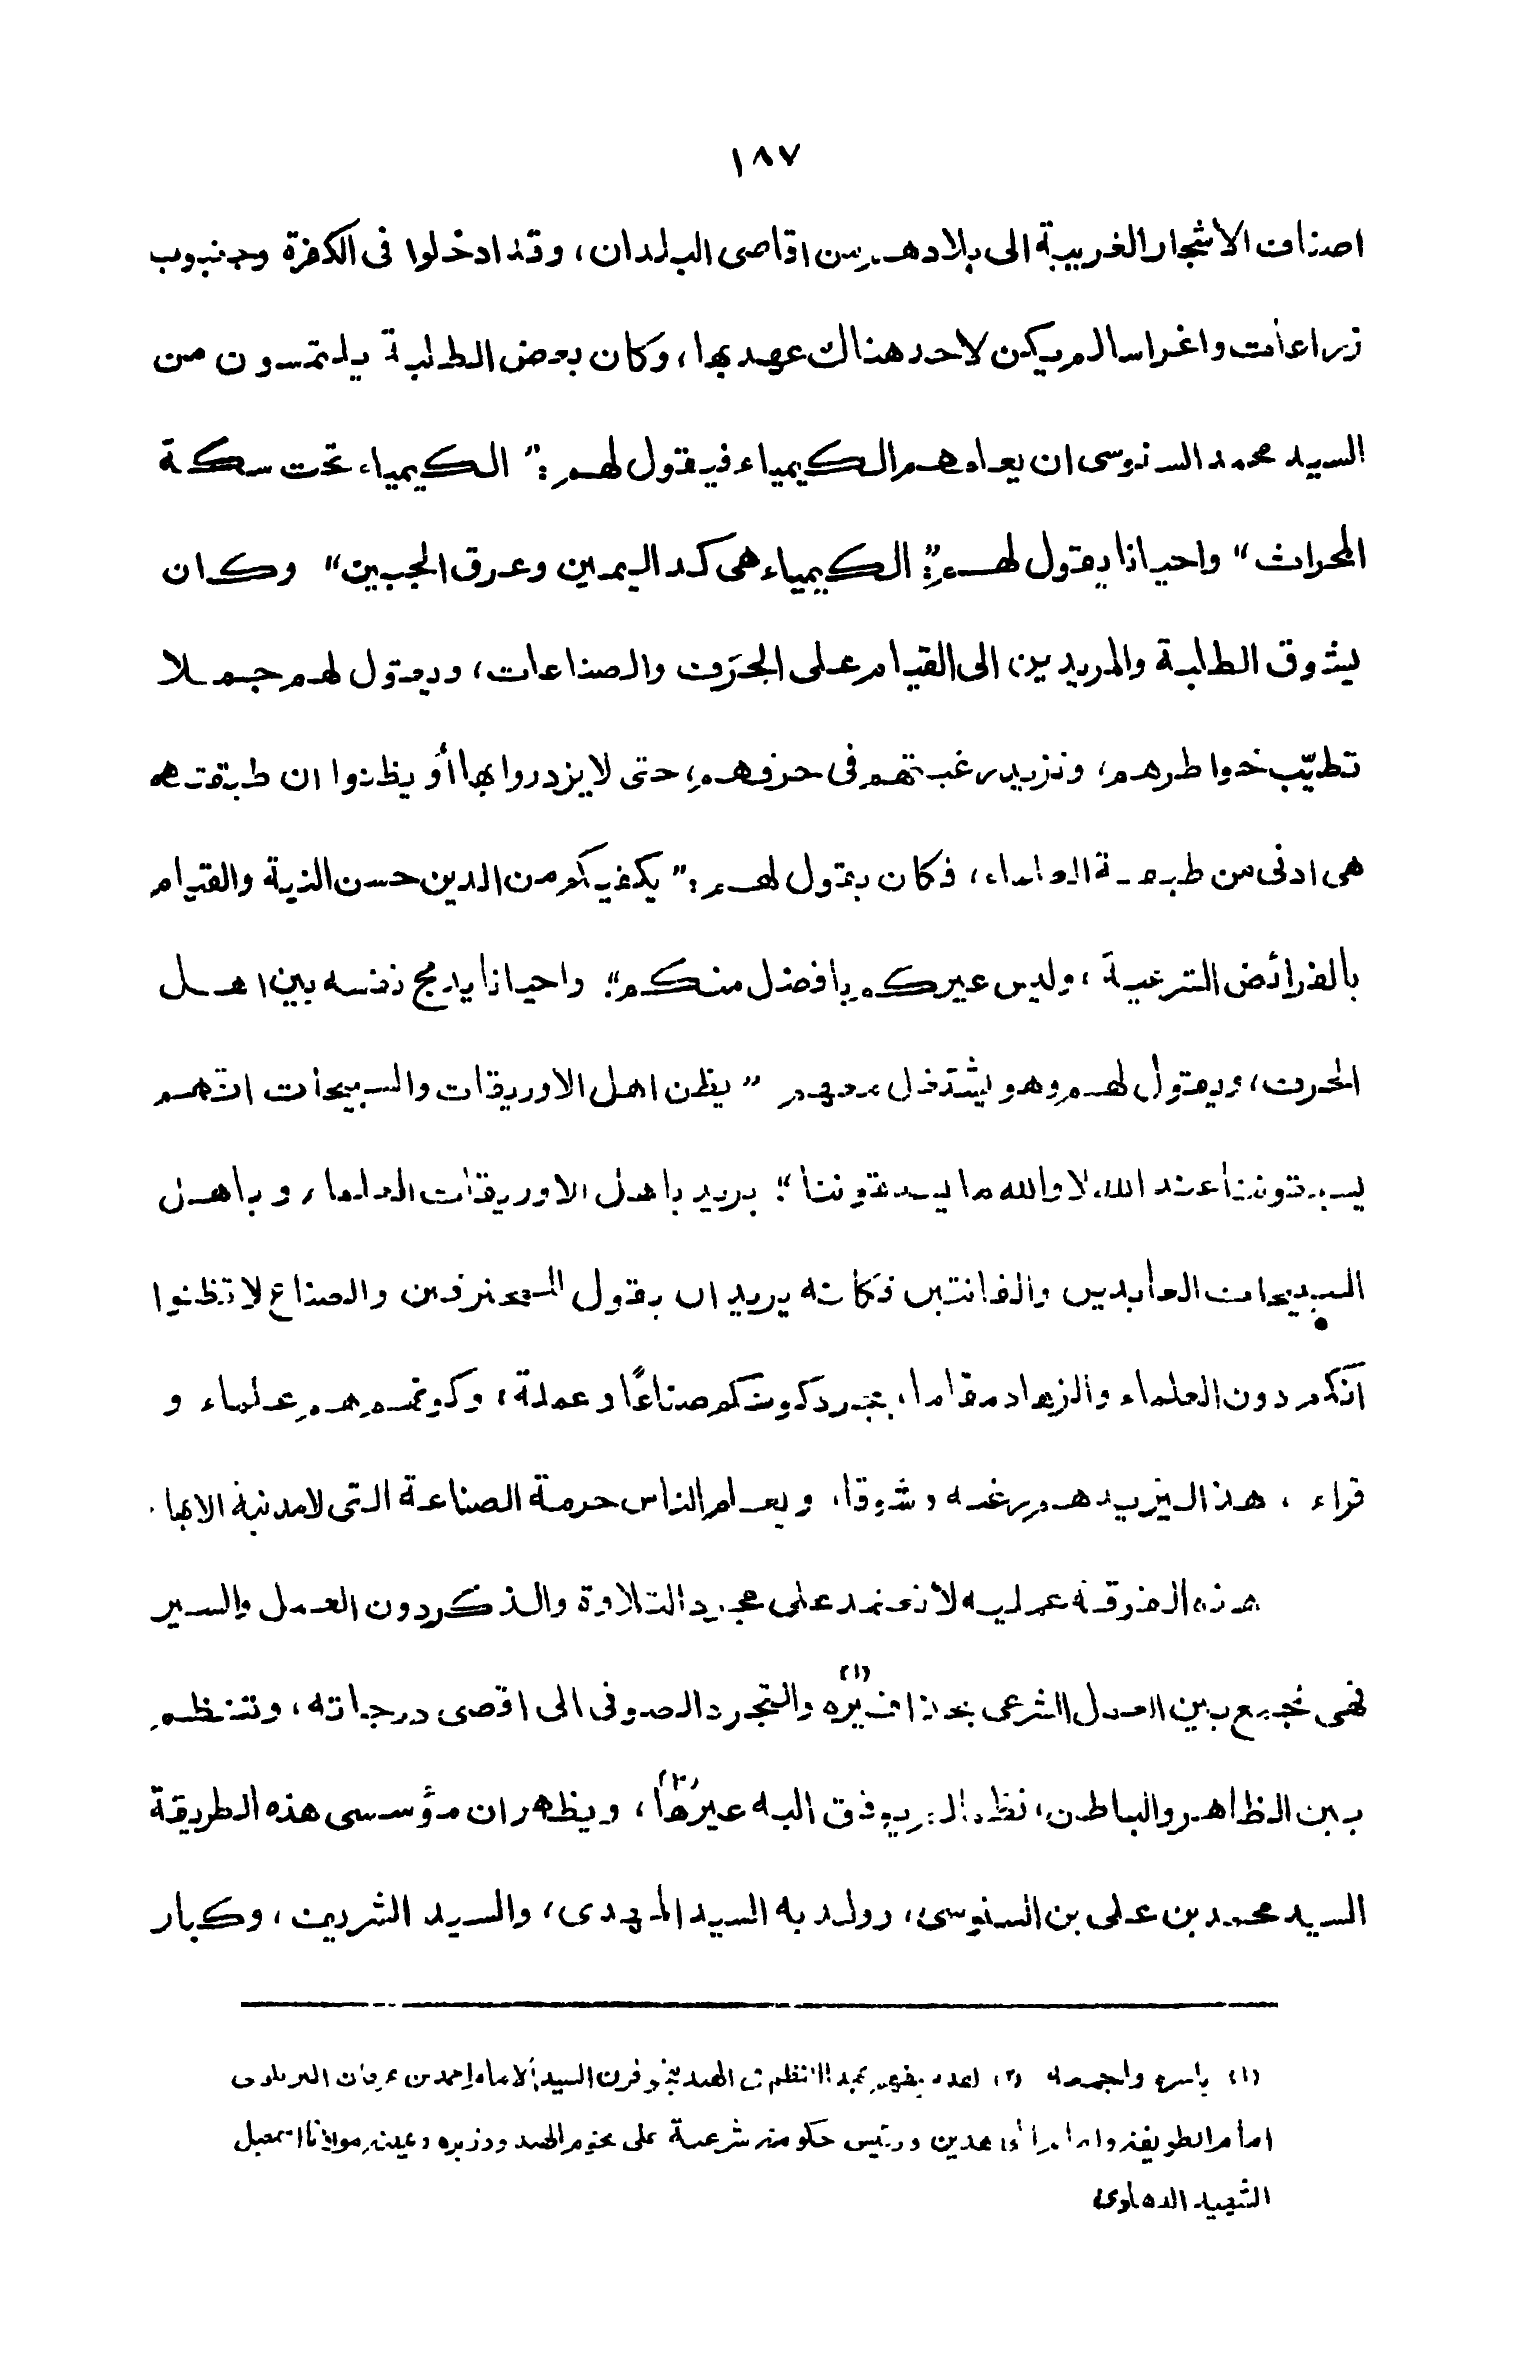 ١٨٧
اصناف الاشجار الغريبة الى بلادهم من اقاصى البلدان، وقد ادخلوا فى الكفرة وجنبوب
زراعات واغراسا لم يكن لاحد هناك عهد بها، وكان بعض الطلبة يلتمسون من
السيد محمد السنوسى ان يعلمهم الكيمياء فيقول لهم: " الكيمياء تحت سكة
المحراث " واحيانا يقول لهم: " الكيمياء هى كد اليمين وعرق الجبين " وكان
يشوق الطلبة والمريدين الى القيام على الحِرَف والصناعات، ويقول لهم جملا
تطيّب خواطرهم، وتزيد رغبتهم فى حرفهم، حتى لا يزدروا بها أو يظنوا ان طبقتهم
هى ادنى من طبقة العلماء، فكان يقول لهم: " يكفيكم من الدين حسن النية والقيام
بالفرائض الشرعية، وليس غيركم بافضل منكم ". واحيانا يدمج نفسه بين اهل
الحرف، ويقول لهم وهو يشتغل معهم " يظن اهل الاوريقات والسبيحات انهم
يسبقوننا عند الله، لا والله ما يسبقوننا ". يريد باهل الاوريقات العلماء، وباهل
السبيحات العابدين والقانتين فكانه يريد ان يقول للمحترفين والصناع لا تظنوا
انكم دون العلماء والزهاد مقاما، بمجرد كونكم صناعًا وعملة، وكونهم هم علماء و
قراء، هذا ليزيدهم رغبة وشوقا، ويعلم الناس حرمة الصناعة التى لا مدنية الا بها.
هذه الفرقة عملية لا تعتمد على مجرد التلاوة والذكر دون العمل والسير
فهى تجمع بين العمل الشرعى بحذافيره (١) والتجرد الصوفى الى اقصى درجاته، وتنظم
بين الظاهر والباطن، نظما لم يوفق اليه غيرها (٢)، ويظهر ان مؤسسى هذه الطريقة
السيد محمد بن على بن السنوسى، وولديه السيد المهدى، والسيد الشريف، وكبار
(١) باسره واجمعه (٢) السيد الامام احمد بن عرفان البريلوى
امام الطريقة ورئيس حكومة شرعية على الهند ووزيره مولانا اسمعيل
الشهيد الدهلوى